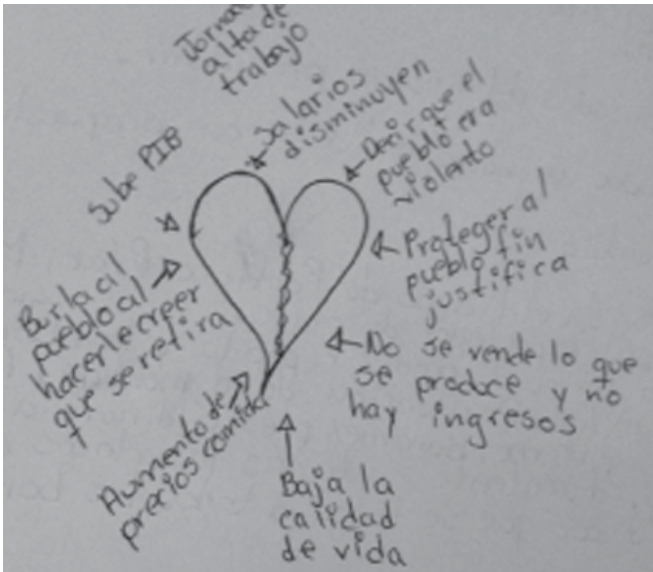 Jornada
alta de
trabajo
Salarios
disminuyen
Decir que el
pueblo era
violento
Sube PIB
Proteger al
pueblo fin
justifica
Burla al
pueblo al
hacerle creer
que se retira
No se vende lo que
se produce y no
hay ingresos
Aumento de
precios comida
Baja la
calidad
de vida